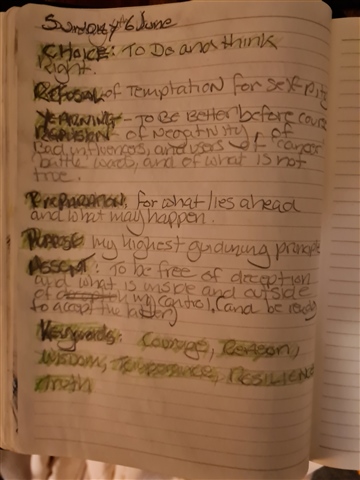 Sunday 6 June
CHOICE: To Do and think
right.
REFUSAL of Temptation for self-pity
YEARNING - To Be Better before
REPULSION - of Negativity, of
bad influences, and users of
battle words, and of what is not
true.
PREPARATION, for what lies ahead
and what may happen.
PURPOSE my highest guiduning principle
ASSENT: To be free of deception
and what is inside and outside
of my control, (and be ready
to accept the latter)
Keywords: Courage, Reason,
Wisdom, Temperance, RESILIENCE
Truth